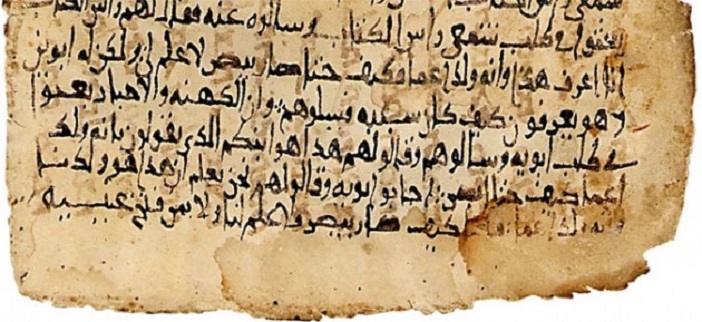 في طلب شمعي راس الكتاب وسالوه عنه فقال لهم راس
انا اعرف هذا وانه ولد اعما فكيف حتا صار يبصر لا علم لي ولكن له ابوين
هو يعرفون كيف كان سببه فسلوهم وان الكهنه والاحبار بعثوا
في طلب ابويه وسالوهم وقالو لهم هذا هو ابنكم الذي تقولون بانه ولد
اعما كيف حتا ابصر ابويه وقالو لهم نحن نعلم ان هذا هو ولدنا
وانه ولد اعما كيف صار يبصر فلا علم لنا ولا بمن فتح عينيه